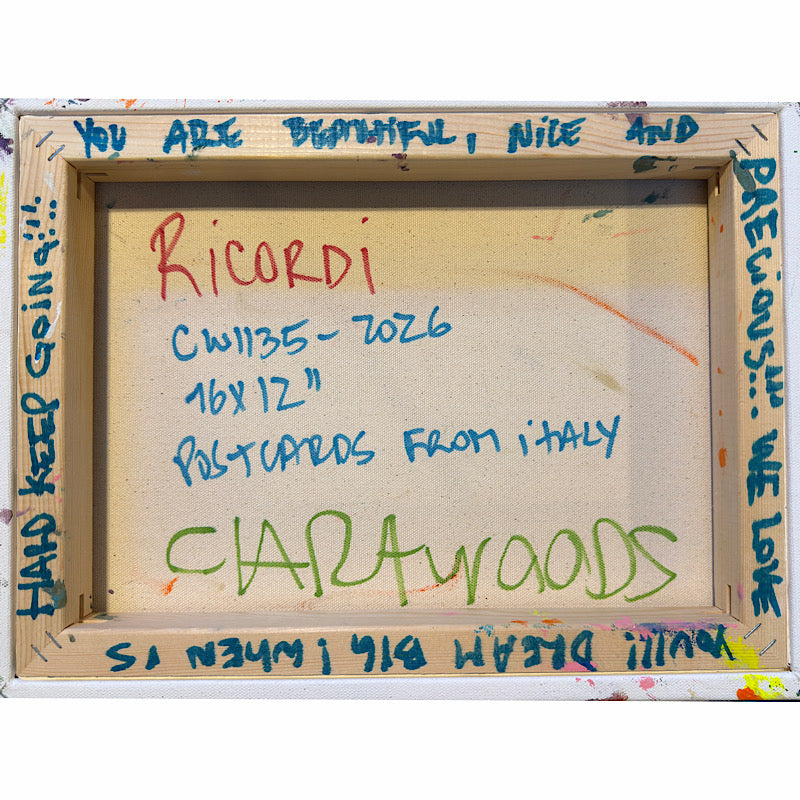 YOU ARE BEAUTIFUL, NICE AND
PRECIOUS!!!.. WE LOVE
YOU!!! DREAM BIG! WHEN IS
HARD KEEP GOING!!!..
RICORDI
CW1135-2026
16X12"
POSTCARDS FROM iTALY
CLARAWOODS